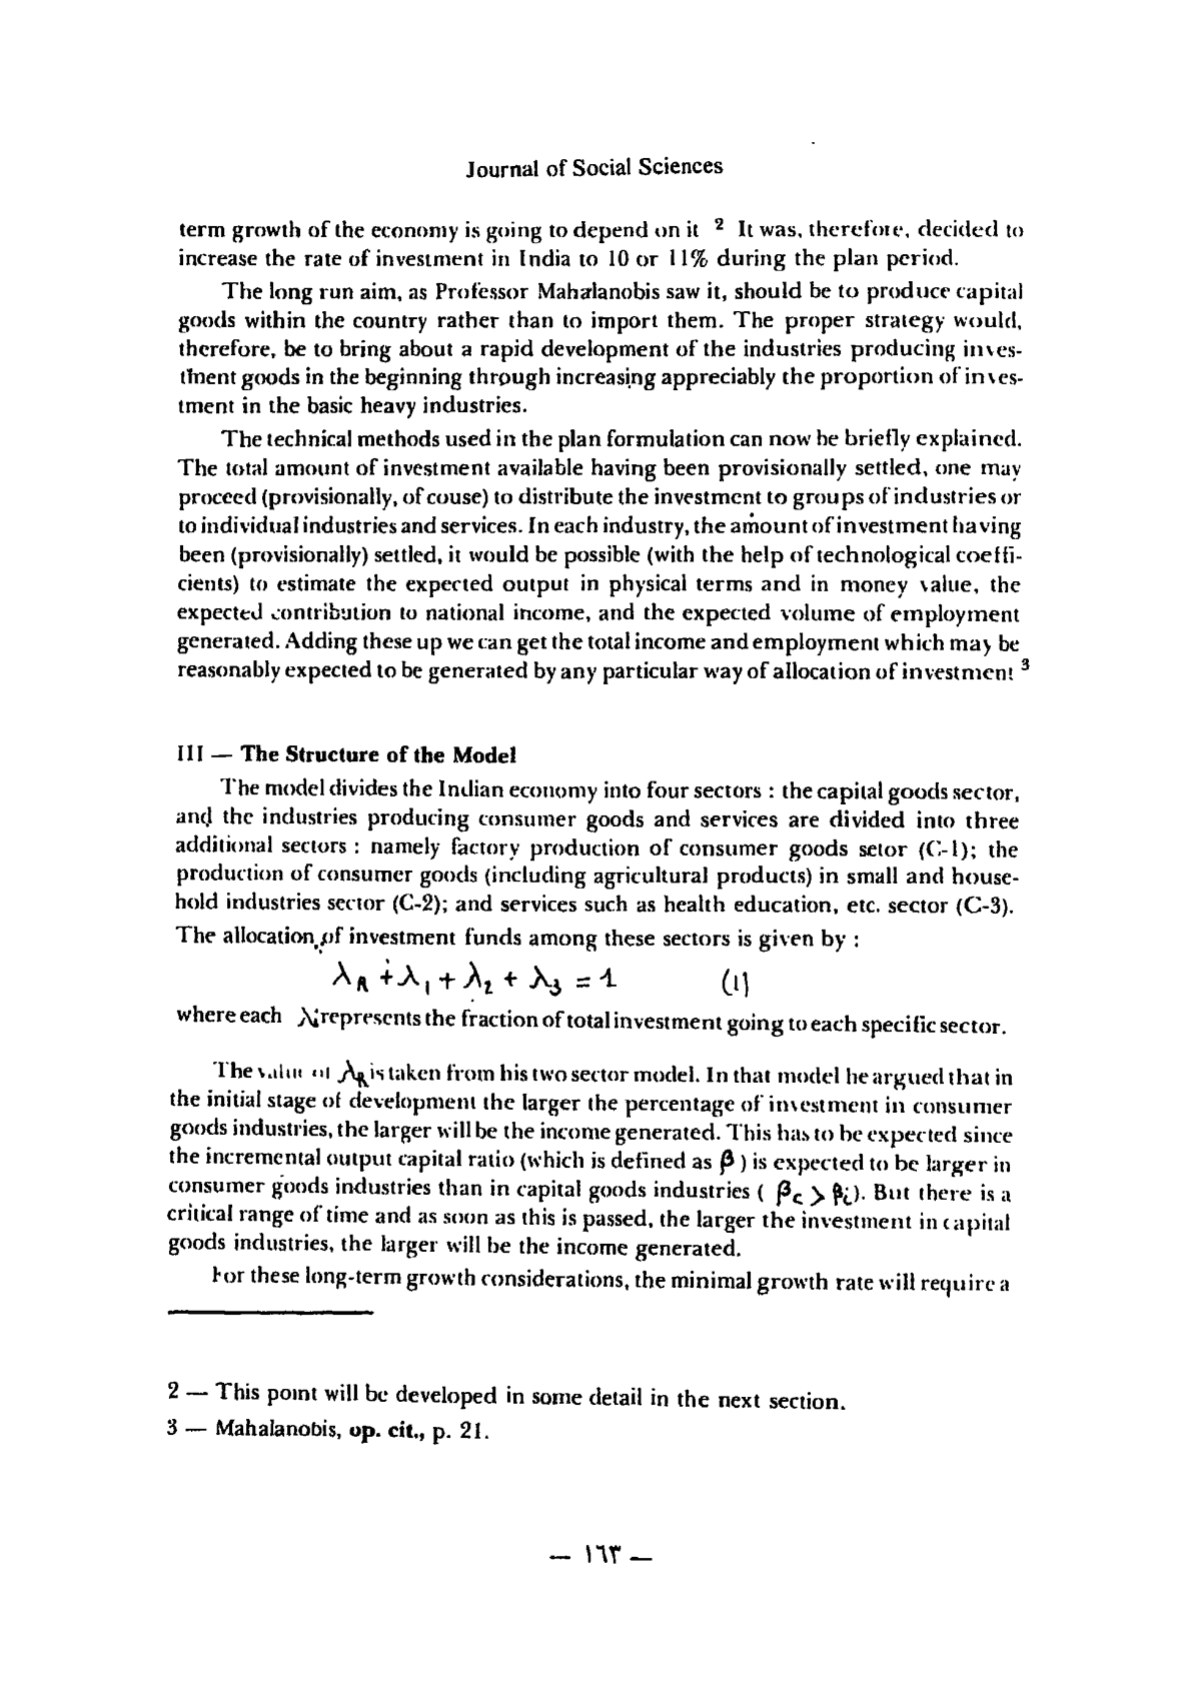 Journal of Social Sciences
term growth of the economy is going to depend on it ² It was, therefore, decided to
increase the rate of investment in India to 10 or 11% during the plan period.
The long run aim, as Professor Mahalanobis saw it, should be to produce capital
goods within the country rather than to import them. The proper strategy would,
therefore, be to bring about a rapid development of the industries producing inves-
tment goods in the beginning through increasing appreciably the proportion of inves-
tment in the basic heavy industries.
The technical methods used in the plan formulation can now be briefly explained.
The total amount of investment available having been provisionally settled, one may
proceed (provisionally, of couse) to distribute the investment to groups of industries or
to individual industries and services. In each industry, the amount of investment having
been (provisionally) settled, it would be possible (with the help of technological coeffi-
cients) to estimate the expected output in physical terms and in money value, the
expected contribution to national income, and the expected volume of employment
generated. Adding these up we can get the total income and employment which may be
reasonably expected to be generated by any particular way of allocation of investment ³
III — The Structure of the Model
The model divides the Indian economy into four sectors : the capital goods sector,
and the industries producing consumer goods and services are divided into three
additional sectors : namely factory production of consumer goods setor (C-1); the
production of consumer goods (including agricultural products) in small and house-
hold industries sector (C-2); and services such as health education, etc. sector (C-3).
The allocation of investment funds among these sectors is given by :
λR + λ1 + λ2 + λ3 = 1 (1)
where each λi represents the fraction of total investment going to each specific sector.
The value of λR is taken from his two sector model. In that model he argued that in
the initial stage of development the larger the percentage of investment in consumer
goods industries, the larger will be the income generated. This has to be expected since
the incremental output capital ratio (which is defined as β ) is expected to be larger in
consumer goods industries than in capital goods industries ( βc > βi). But there is a
critical range of time and as soon as this is passed, the larger the investment in capital
goods industries, the larger will be the income generated.
For these long-term growth considerations, the minimal growth rate will require a
2 — This point will be developed in some detail in the next section.
3 — Mahalanobis, op. cit., p. 21.
— ١٦٣ —